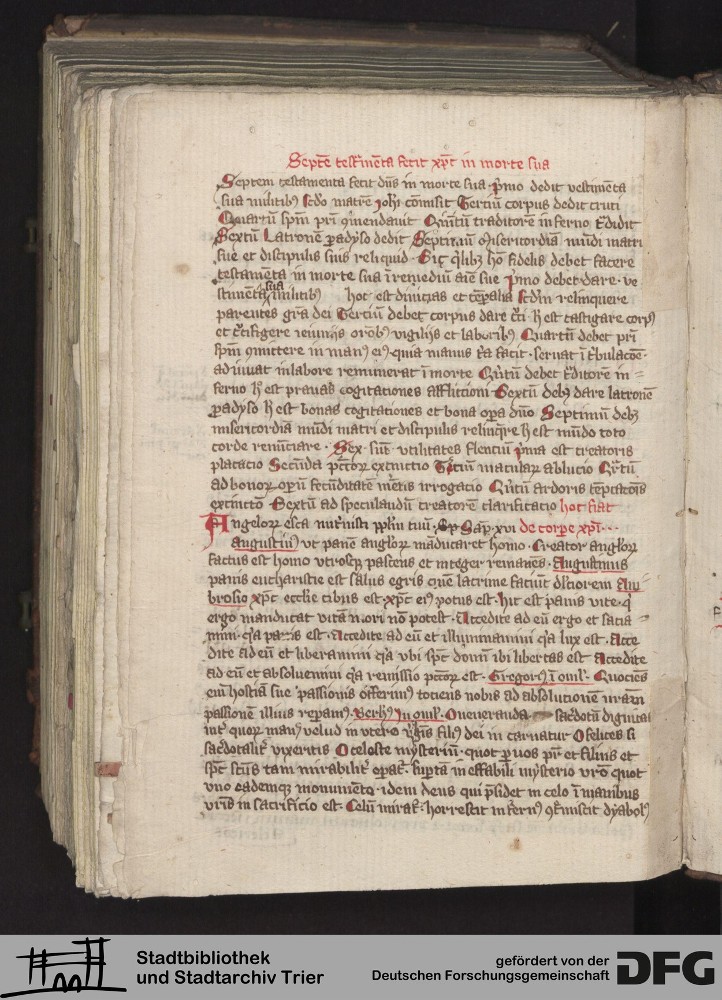 Septē testamēta fecit xp̄c in morte sua
Septem testamenta fecit dn̄s in morte sua p̄mo dedit vestimēta
sua militibꝰ scd̄o matrē Joh̄i cōmisit Terciū corpus dedit cruci
Quartū sp̄m pr̄i ꝯmendauit Quintū traditorē inferno t̄didit
Sextū Latronē ꝑadyso dedit Septimū misericordiā mūdi matri
sue et discipulis suis reliquid Sic q̄libꝫ hō fidelis debet facere
testamēta in morte sua ī remediū aīe sue p̄mo debet dare ve
stimēta sua militibꝰ hoc est diuicias et tēpalia scd̄m relinquere
parentes gr̄a dei Terciū debet corpus dare c̄ci h̄ est castigare corpꝰ
et c̄cifigere ieiunijs orōibꝰ vigilijs et laboribꝰ Quartū debet pr̄i
sp̄m ꝯmittere in manꝰ eiꝰ quia manus facit seruat ī t̄bulacōe
adiuuat in labore remunerat ī morte Qui̇tū debet t̄ditorē in
ferno h̄ est prauas cogitationes afflictioni Sextū debꝫ dare latronē
ꝑadyso h̄ est bonas cogitationes et bona oꝑa dn̄o Septimū debꝫ
misericordiā mūdi matri et discipulis relinq̄re h̄ est mūdo toto
corde renūciare Sex sūt vtilitates flencium p̄ma est creatoris
placacio Secūda pctōꝝ extinctio Terciū macularꝝ ablucio Qr̄tū
ad bonoꝝ oꝑū fecūditatē mētis irrogacio Qui̇tū ardoris tēptacōīs
extinctō Sextū ad speculandū creatorē clarificatio hoc fiat
Angeloꝝ esca nut'uisti pplm̄ tuū Sap̄ xvi de corꝑe xp̄i
Augustinꝰ vt panē angloꝝ māducaret homo Creator angloꝝ
factus est homo vtrosqꝫ pascens et integer remanēs Augustinus
panis eucharistie est salus egris Am
brosio xp̄c ecclīe cibus est xp̄c eiꝰ potus est hic est panis vite q̄
ergo manducat vitā mori nō potest Accedite ad eū ergo et sacia
mini q̄a panis est Accedite ad eū et illuminamini q̄a lux est Acce
dite ad eū et liberamini q̄a vbi sp̄c domī ibi libertas est Accedite
ad eū et absoluemini q̄a remissio pctōꝝ est Gregoriꝰ ī omīl Quociēs
ei̅ hostiā sue passionis offerimꝰ tociens nobis ad absolucionē nr̄am
passionē illius reꝑamꝰ Berhꝰ In omīl O veneranda sac̄dotū dignitas
int̄ quoꝝ manꝰ velud in vtero v̄gīs filiꝰ dei in carnatur O felices si
sac̄dotalit̄ vixeritis O celeste mysteriū quot ꝑ vos pr̄ et filius et
sp̄c sc̄us tam mirabilit̄ oꝑat in effabili mysterio vr̄o quot
vno eademqꝫ monumēto idem deus qui p̄sidet in celo ī manibus
vr̄is in sacrificio est Celū mirat̄ horrescit infernꝰ ꝯt̄miscit dyabolꝰ
Stadtbibliothek
und Stadtarchiv Trier
gefördert von der
Deutschen Forschungsgemeinschaft
DFG